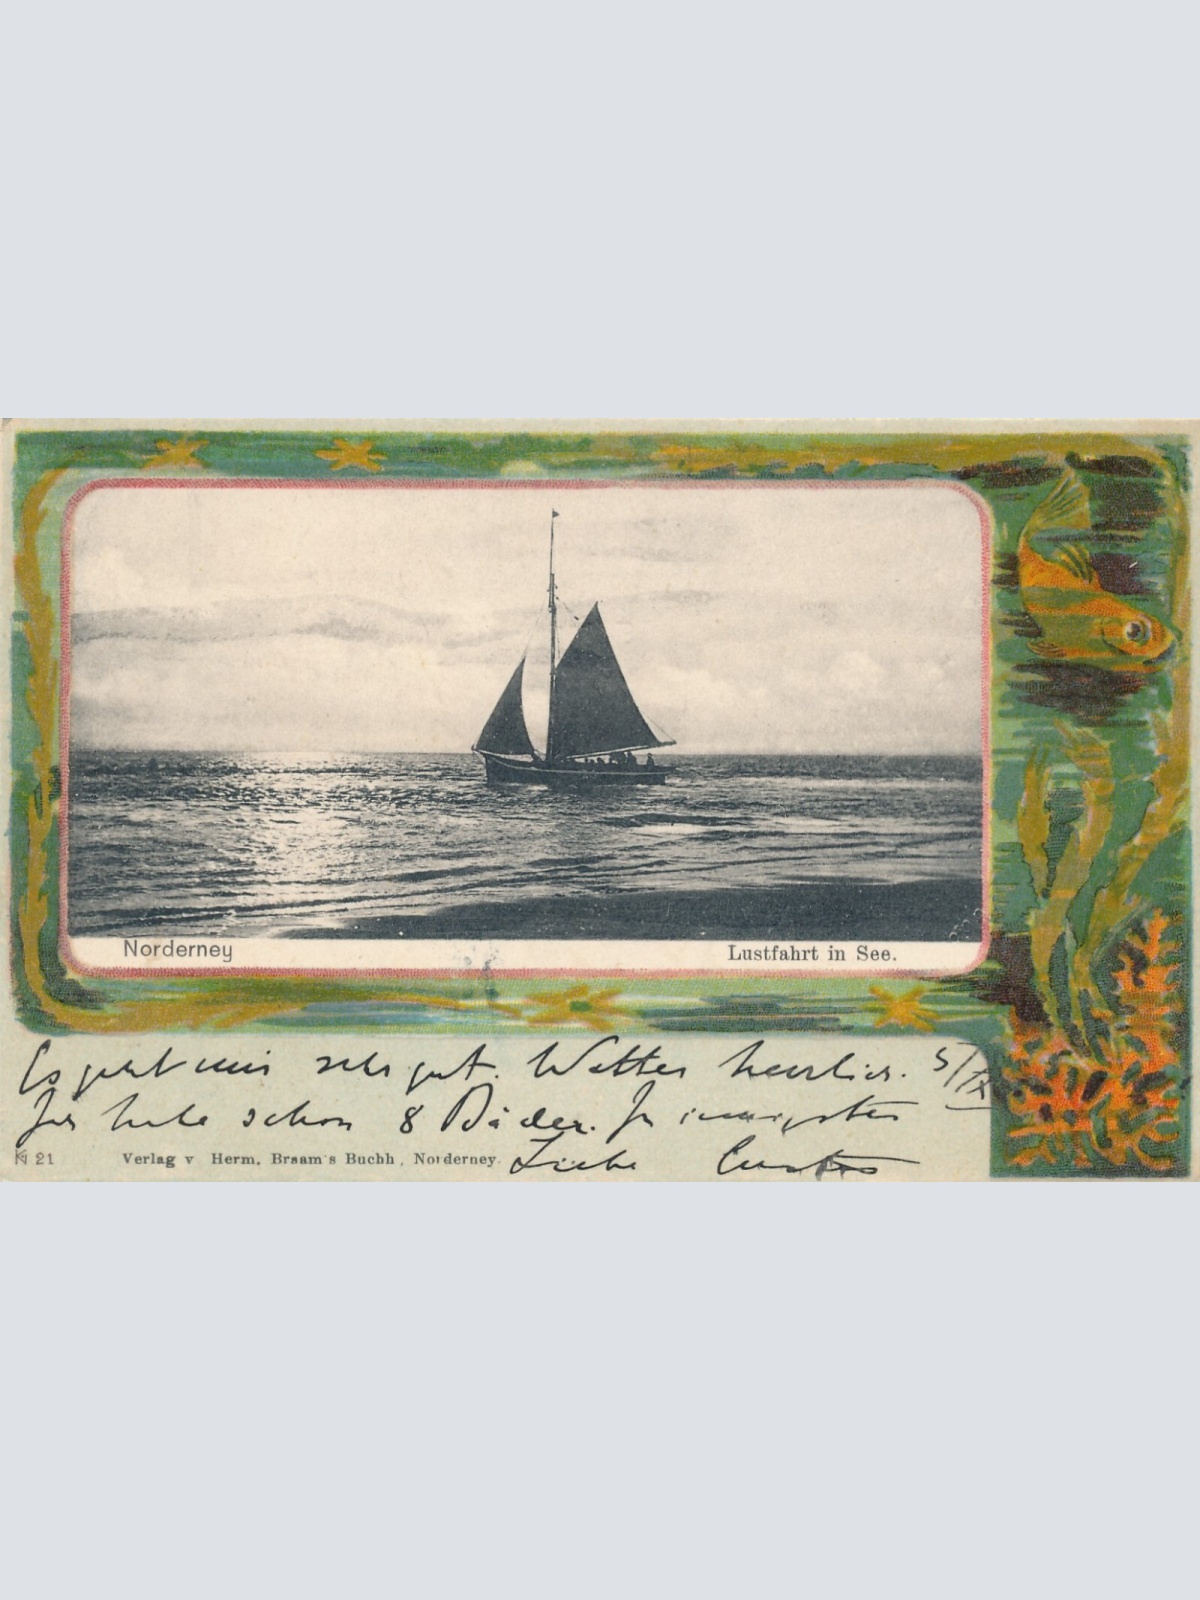 Norderney
Lustfahrt in See.
Es geht mir sehr gut. Wetter herrlich. 5/IX
Ich habe schon 8 Bäder. In innigster
Liebe
21
Verlag v Herm. Braam's Buchh, Norderney.